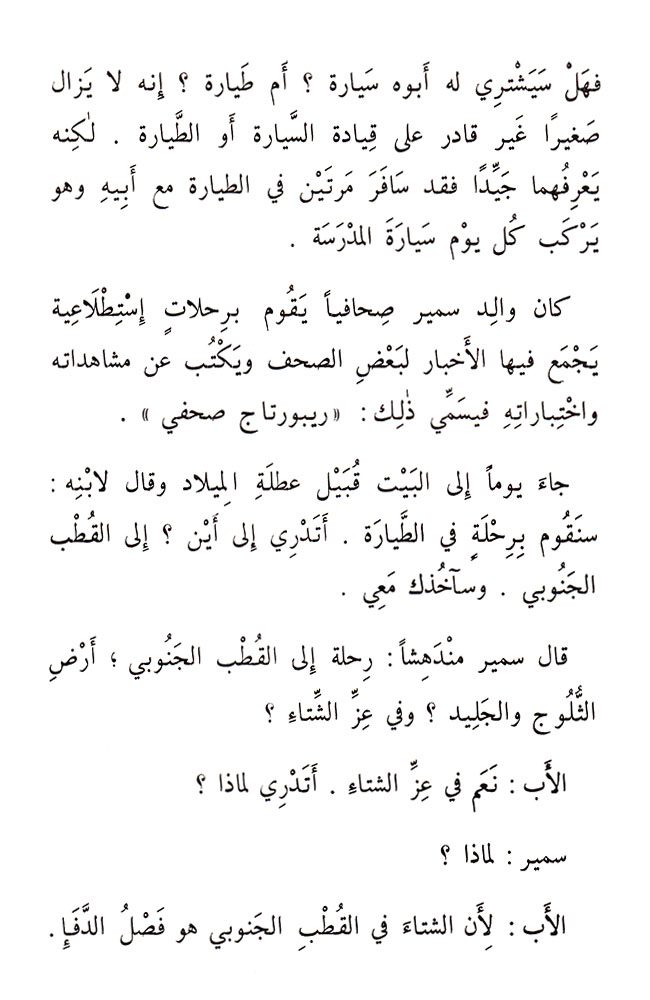 فهَلْ سَيَشْترِي له أَبوه سَيارة ؟ أَم طَيارة ؟ إِنه لا يَزال
صَغيرًا غَير قادر على قِيادة السَّيارة أَو الطَّيارة . لٰكِنه
يَعْرِفُهما جَيِّدًا فقد سَافَرَ مَرتَيْن في الطيارة مع أَبِيهِ وهو
يَرْكَب كُل يوْم سَيارَةَ المدْرَسَة .
كان والِد سمير صِحافياً يَقُوم برِحلاتٍ إِسْتِطْلَاعِية
يَجْمَع فيها الأَخبار لبَعْضِ الصحف ويَكْتُب عن مشاهداته
واخْتِباراتِهِ فيسَمِّي ذٰلِك : « ريبورتاج صحفي » .
جاءَ يوماً إِلى البَيْت قُبَيْل عطلَةِ المِيلاد وقال لابْنِه :
سنَقُوم بِرِحْلَةٍ في الطَّيارَة . أَتَدْرِي إِلى أَيْن ؟ إِلى القُطْب
الجَنُوبي . وسآخُذك مَعِي .
قال سمير منْدَهِشاً : رِحلة إِلى القُطْب الجَنُوبي ؛ أَرْضِ
الثُّلُوج والجَلِيد ؟ وفي عِزِّ الشِّتاءِ ؟
الأَب : نَعَم في عِزِّ الشتاءِ . أَتَدْرِي لماذا ؟
سمير : لماذا ؟
الأَب : لِأَن الشتاءَ في القُطْبِ الجَنوبي هو فَصْلُ الدَّفَإِ .